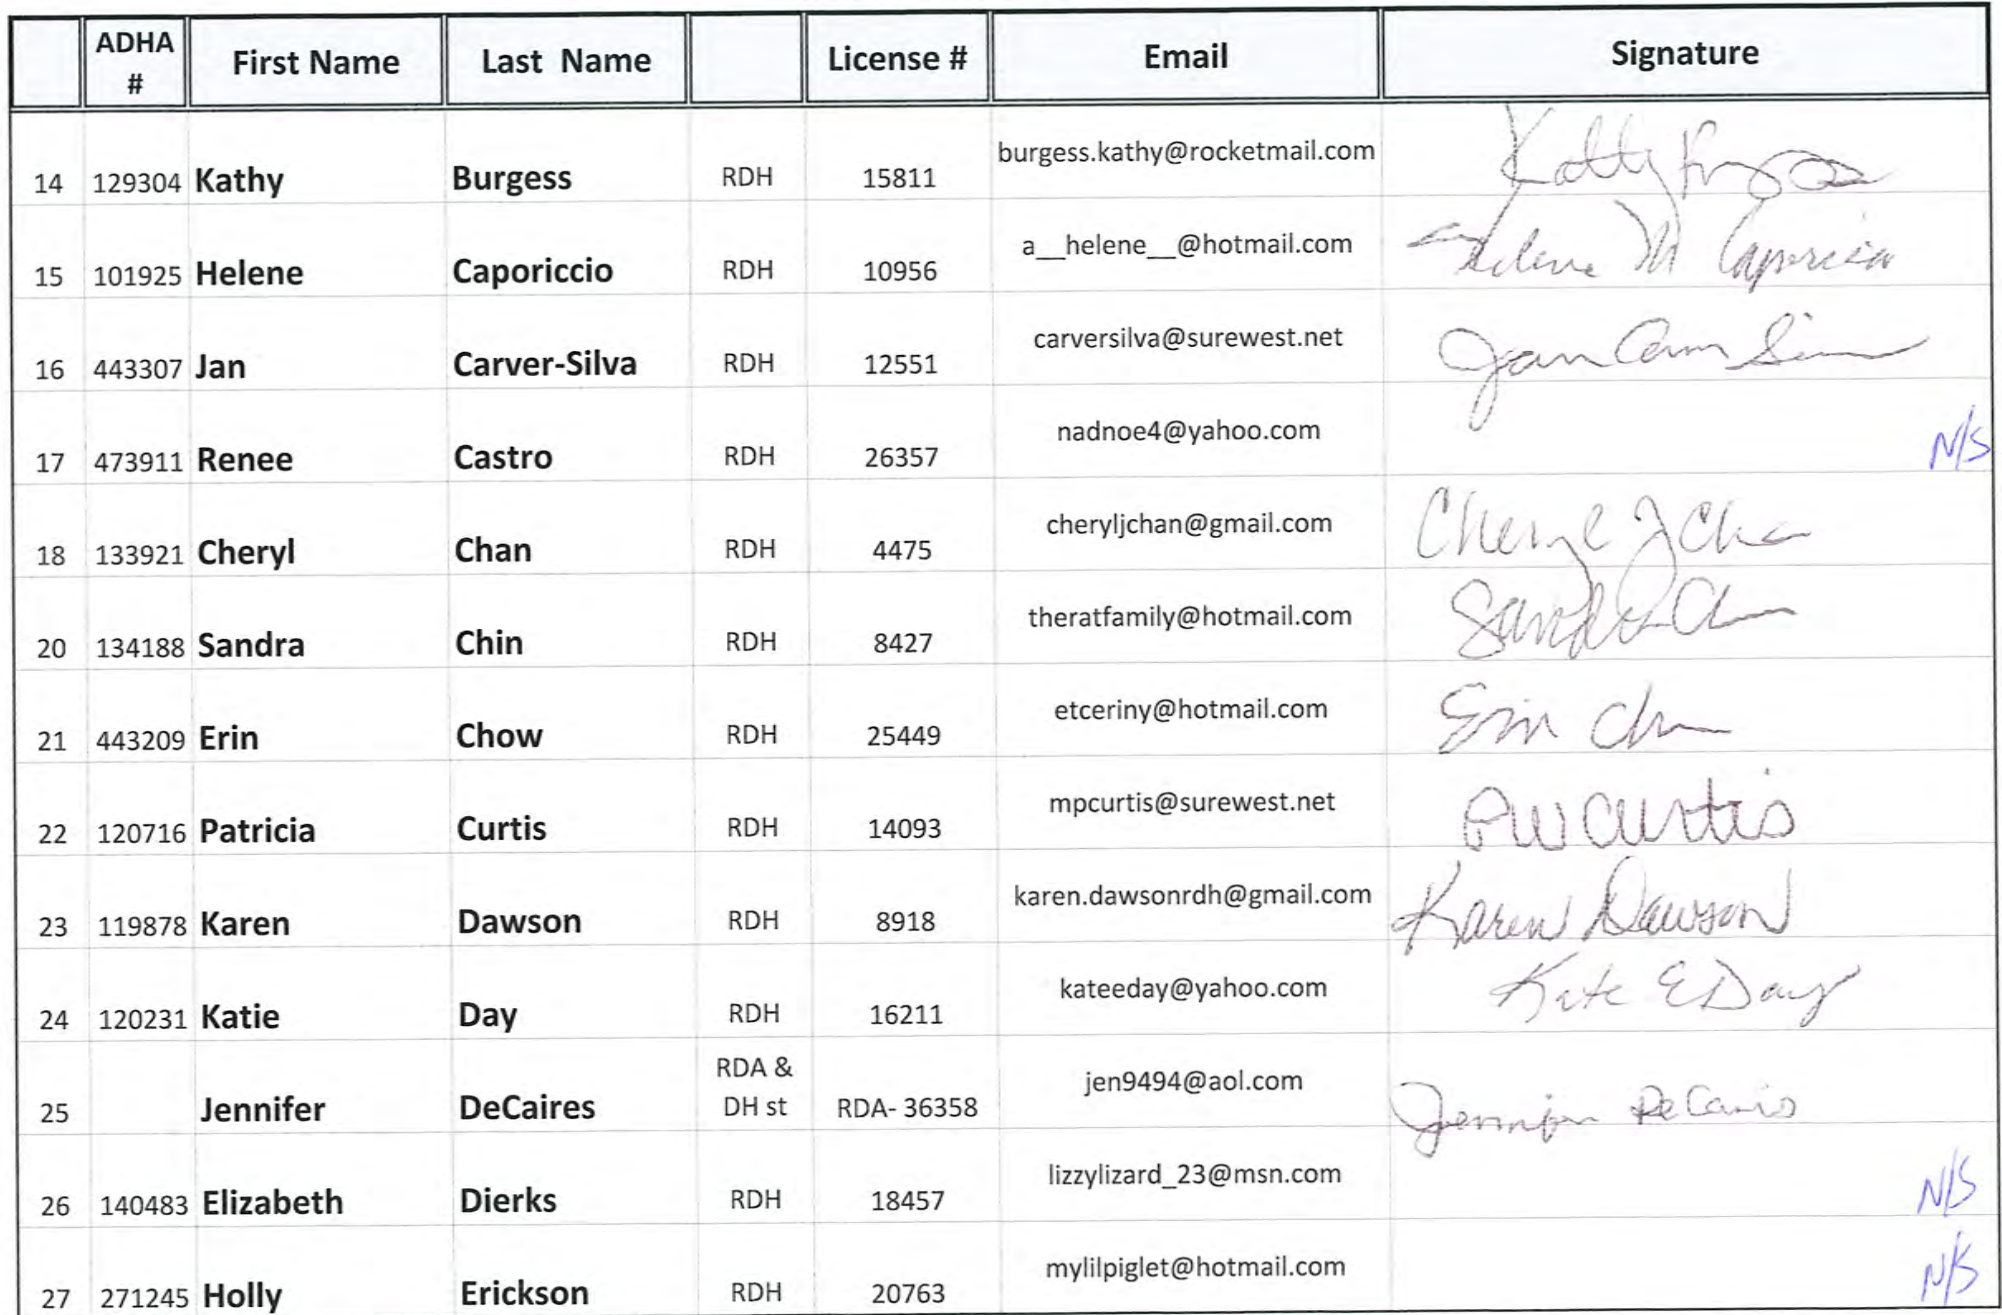 ADHA # First Name Last Name License # Email Signature
14 129304 Kathy Burgess RDH 15811 burgess.kathy@rocketmail.com Kathy Burgess
15 101925 Helene Caporiccio RDH 10956 a__helene__@hotmail.com Helene M Caporiccio
16 443307 Jan Carver-Silva RDH 12551 carversilva@surewest.net Jan Carver Silva
17 473911 Renee Castro RDH 26357 nadnoe4@yahoo.com N/S
18 133921 Cheryl Chan RDH 4475 cheryljchan@gmail.com Cheryl J Chan
20 134188 Sandra Chin RDH 8427 theratfamily@hotmail.com Sandra Chin
21 443209 Erin Chow RDH 25449 etceriny@hotmail.com Erin Chow
22 120716 Patricia Curtis RDH 14093 mpcurtis@surewest.net PW Curtis
23 119878 Karen Dawson RDH 8918 karen.dawsonrdh@gmail.com Karen Dawson
24 120231 Katie Day RDH 16211 kateeday@yahoo.com Kate E Day
25 Jennifer DeCaires RDA & DH st RDA- 36358 jen9494@aol.com Jennifer DeCaires
26 140483 Elizabeth Dierks RDH 18457 lizzylizard_23@msn.com N/S
27 271245 Holly Erickson RDH 20763 mylilpiglet@hotmail.com N/S